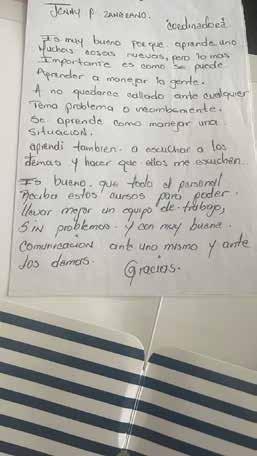 JENNY P ZAMBRANO.
Coordinadora
Es muy bueno porque aprende uno
Muchas cosas nuevas, pero lo mas
Importante es como se puede
Aprender a manejar la gente.
A no quedarce callado ante cualquier
Tema problema o
Se aprende como manejar una
situacion.
aprendi tambien a escuchar a los
demas y hacer que ellos me escuchen.
Es bueno que todo el personal
Reciba estos cursos para poder
llevar mejor un equipo de trabajo,
Sin problemas y con muy buena
Comunicacion ante uno mismo y ante
los demas.
Gracias.